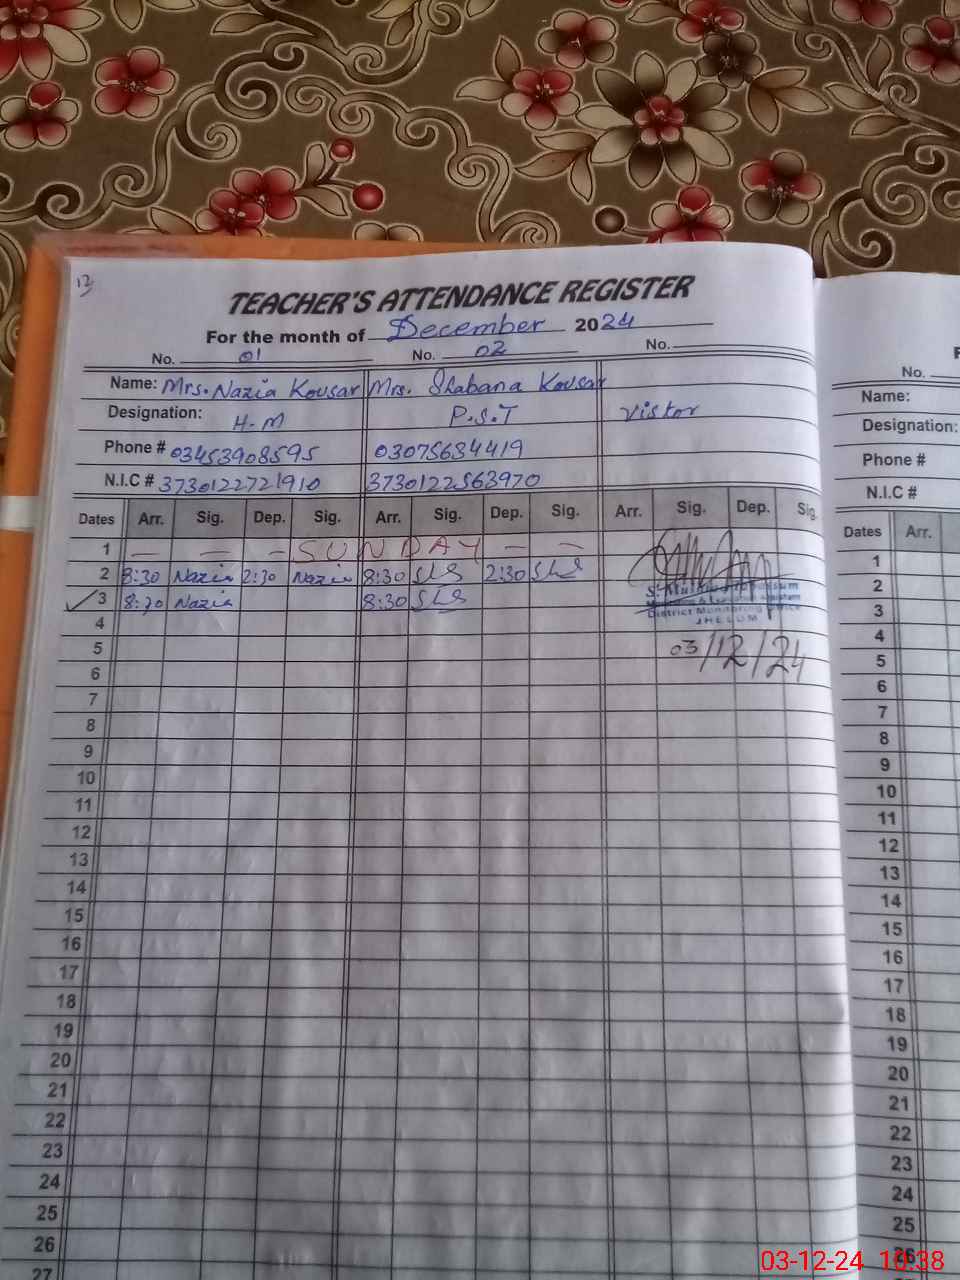 12
TEACHER'S ATTENDANCE REGISTER
For the month of December 2024
No. 01 No. 02 No.
Name: Mrs. Nazia Kousar Mrs. Shabana Kousar
Designation: H-M P.S.T Visitor
Phone # 03453908595 03075634419
N.I.C # 3730122721910 3730122563970
Dates Arr. Sig. Dep. Sig. Arr. Sig. Dep. Sig. Arr. Sig. Dep. Sig.
1 — — — SUNDAY — —
2 8:30 Nazia 2:30 Nazia 8:30 2:30
3 8:30 Nazia 8:30
District Monitoring Office
JHELUM
4
5 03/12/24
6
7
8
9
10
11
12
13
14
15
16
17
18
19
20
21
22
23
24
25
26
27
No.
Name:
Designation:
Phone #
N.I.C #
Dates Arr.
1
2
3
4
5
6
7
8
9
10
11
12
13
14
15
16
17
18
19
20
21
22
23
24
25
26
03-12-24 10:38